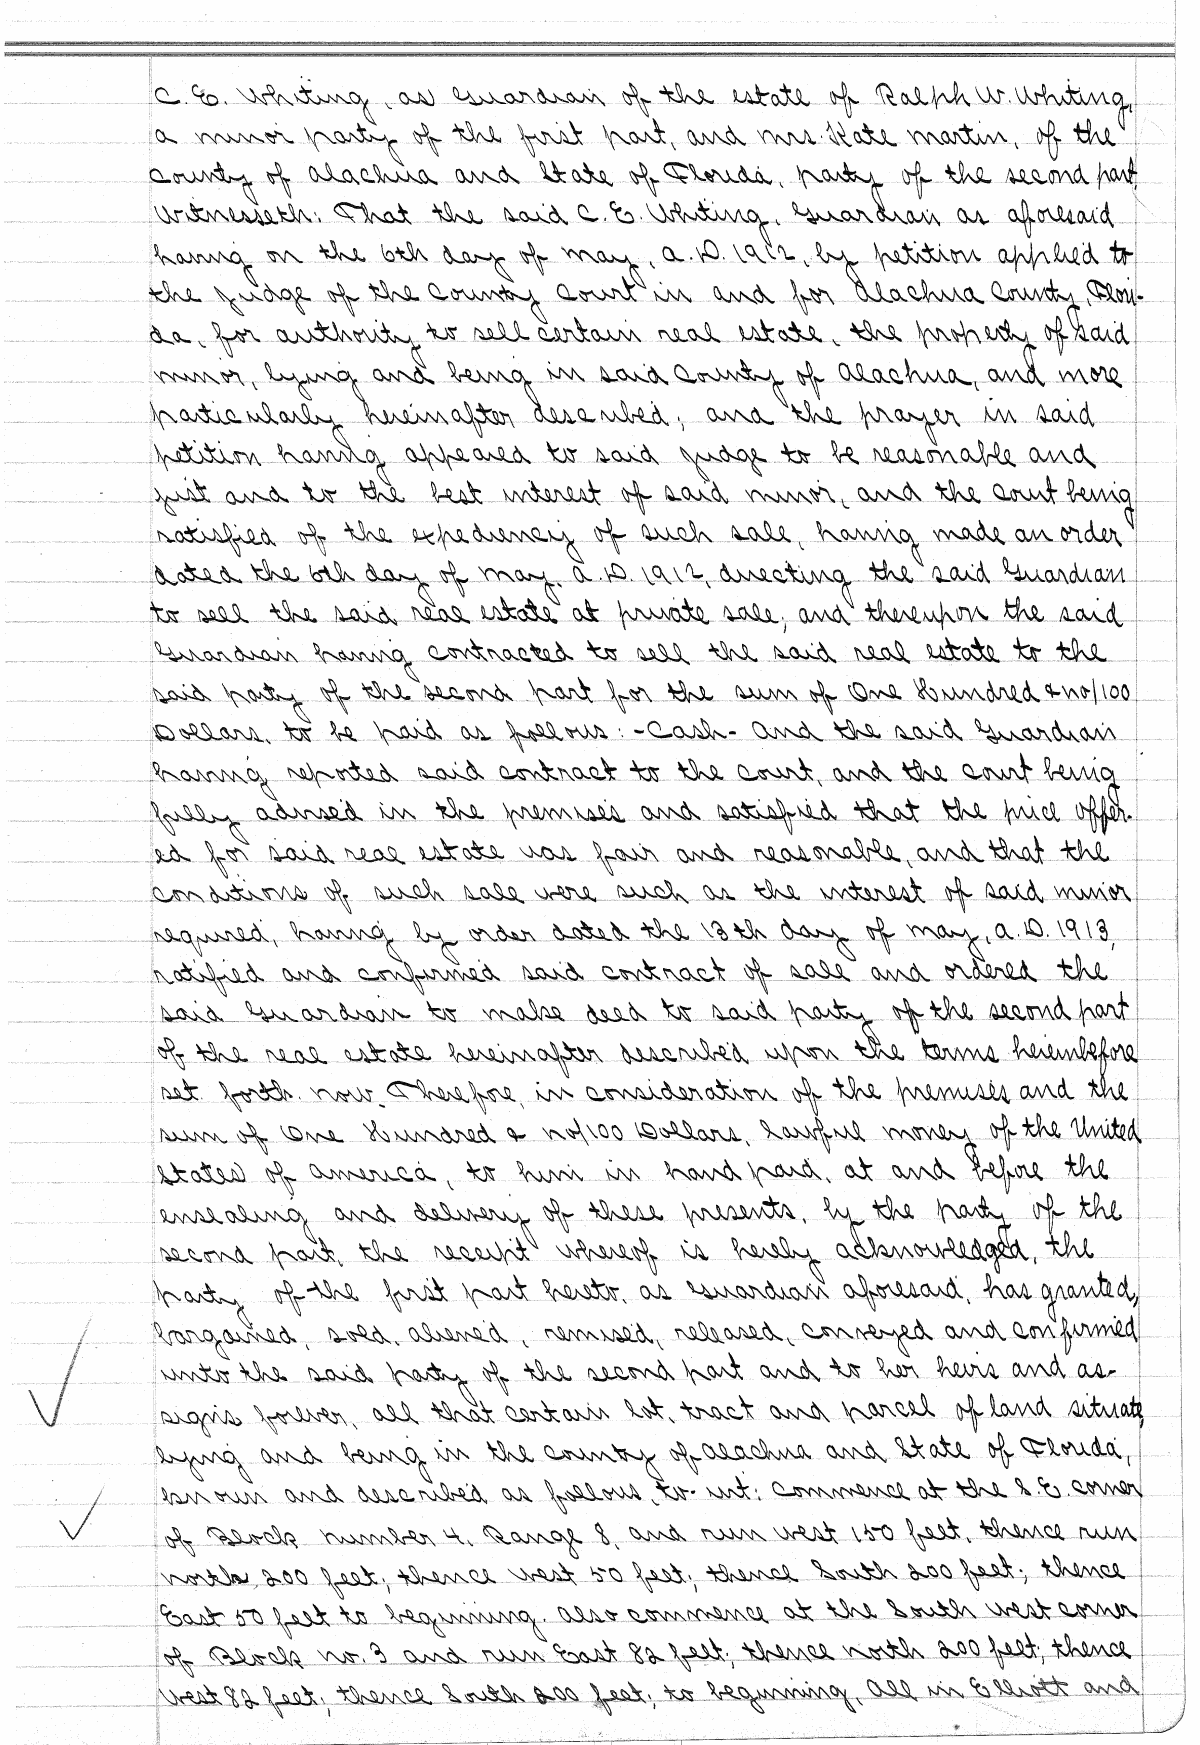 C. E. Whiting, as Guardian of the estate of Ralph W. Whiting,
a minor party of the first part, and Mrs. Kate Martin, of the
County of Alachua and State of Florida, party of the second part,
Witnesseth: That the said C. E. Whiting, Guardian as aforesaid
having on the 6th day of May, A.D. 1912, by petition applied to
the Judge of the County Court in and for Alachua County, Flori-
da, for authority to sell certain real estate, the property of said
minor, lying and being in said County of Alachua, and more
particularly hereinafter described; and the prayer in said
petition having appeared to said Judge to be reasonable and
just and to the best interest of said minor, and the Court being
satisfied of the expediency of such sale, having made an order
dated the 6th day of May, A.D. 1912, directing the said Guardian
to sell the said real estate at private sale; and thereupon the said
Guardian having contracted to sell the said real estate to the
said party of the second part for the sum of One Hundred & no/100
Dollars, to be paid as follows: -Cash- And the said Guardian
having reported said contract to the court, and the court being
fully advised in the premises and satisfied that the price offer-
ed for said real estate was fair and reasonable, and that the
conditions of such sale were such as the interest of said minor
required, having by order dated the 13th day of May, A.D. 1913,
ratified and confirmed said contract of sale and ordered the
said Guardian to make deed to said party of the second part
of the real estate hereinafter described upon the terms hereinbefore
set forth. Now, Therefore, in consideration of the premises and the
sum of One Hundred & no/100 Dollars, lawful money of the United
States of America, to him in hand paid, at and before the
ensealing and delivery of these presents, by the party of the
second part, the receipt whereof is hereby acknowledged, the
party of the first part hereto, as Guardian aforesaid, has granted,
bargained, sold, aliened, remised, released, conveyed and confirmed
unto the said party of the second part and to her heirs and as-
signs forever, all that certain lot, tract and parcel of land situate,
lying and being in the County of Alachua and State of Florida,
known and described as follows, to-wit: Commence at the S.E. corner
of Block number 4, Range 8, and run West 150 feet, thence run
north 200 feet; thence west 50 feet; thence South 200 feet; thence
East 50 feet to beginning. Also commence at the South west corner
of Block no. 3 and run East 82 feet; thence north 200 feet; thence
West 82 feet; thence South 200 feet; to beginning, All in Elliott and